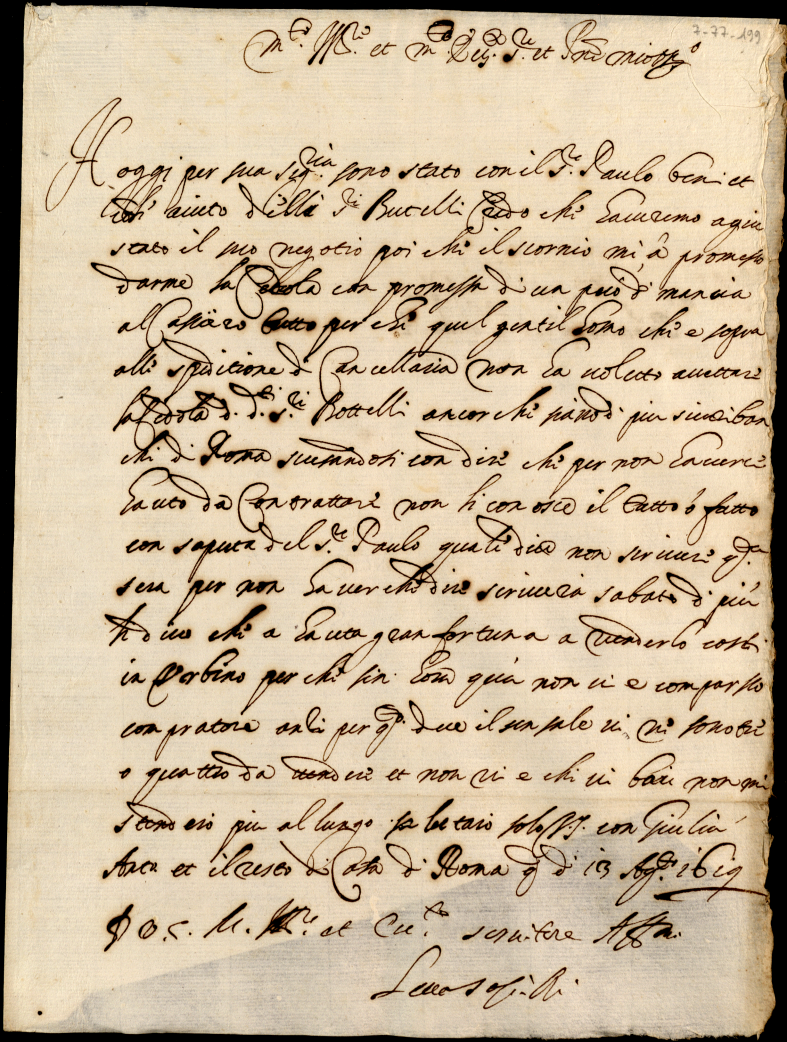 7-77-199
m.to Ill.re et m.to R.do S.re et P.ne mio
Hoggi per sua sig.ria sono stato con il S.re Paulo beni et
aiuto delli S.ri Butelli credo che haveremo agiu
stato il suo negotio poi che il scornio mi à promesso
darme la Cedola con promessa di un poco di mancia
al Casiero tutto perche quel gentil homo che e sopra
alle speditione di Cancellaria non ha voluto accettare
la Cedola d. d.ti S.ri Bottelli ancor che siano di piu sicuri ban
chi di Roma scusandosi con dire che per non havere
hauto da Contrattare non li conosce il tutto ò fatto
con saputa del S.re Paulo quale dice non scrivere q.ta
sera per non haver che dire scriverà sabato di più
li dico che a hauta gran fortuna a venderlo costi
in Urbino perche sin hora quà non vi e comparso
compratore anzi per q.to dice il sensale vi ne sono tre
o quattro da vendere et non vi e chi vi badi non mi
stenderò piu al lungo salutarò solo V.S. con Giulia
et il resto di Casa di Roma q.o dì 13 Ag.to 1619
D. V. S. M. Ill.re et Ecc.te servitore Aff.mo